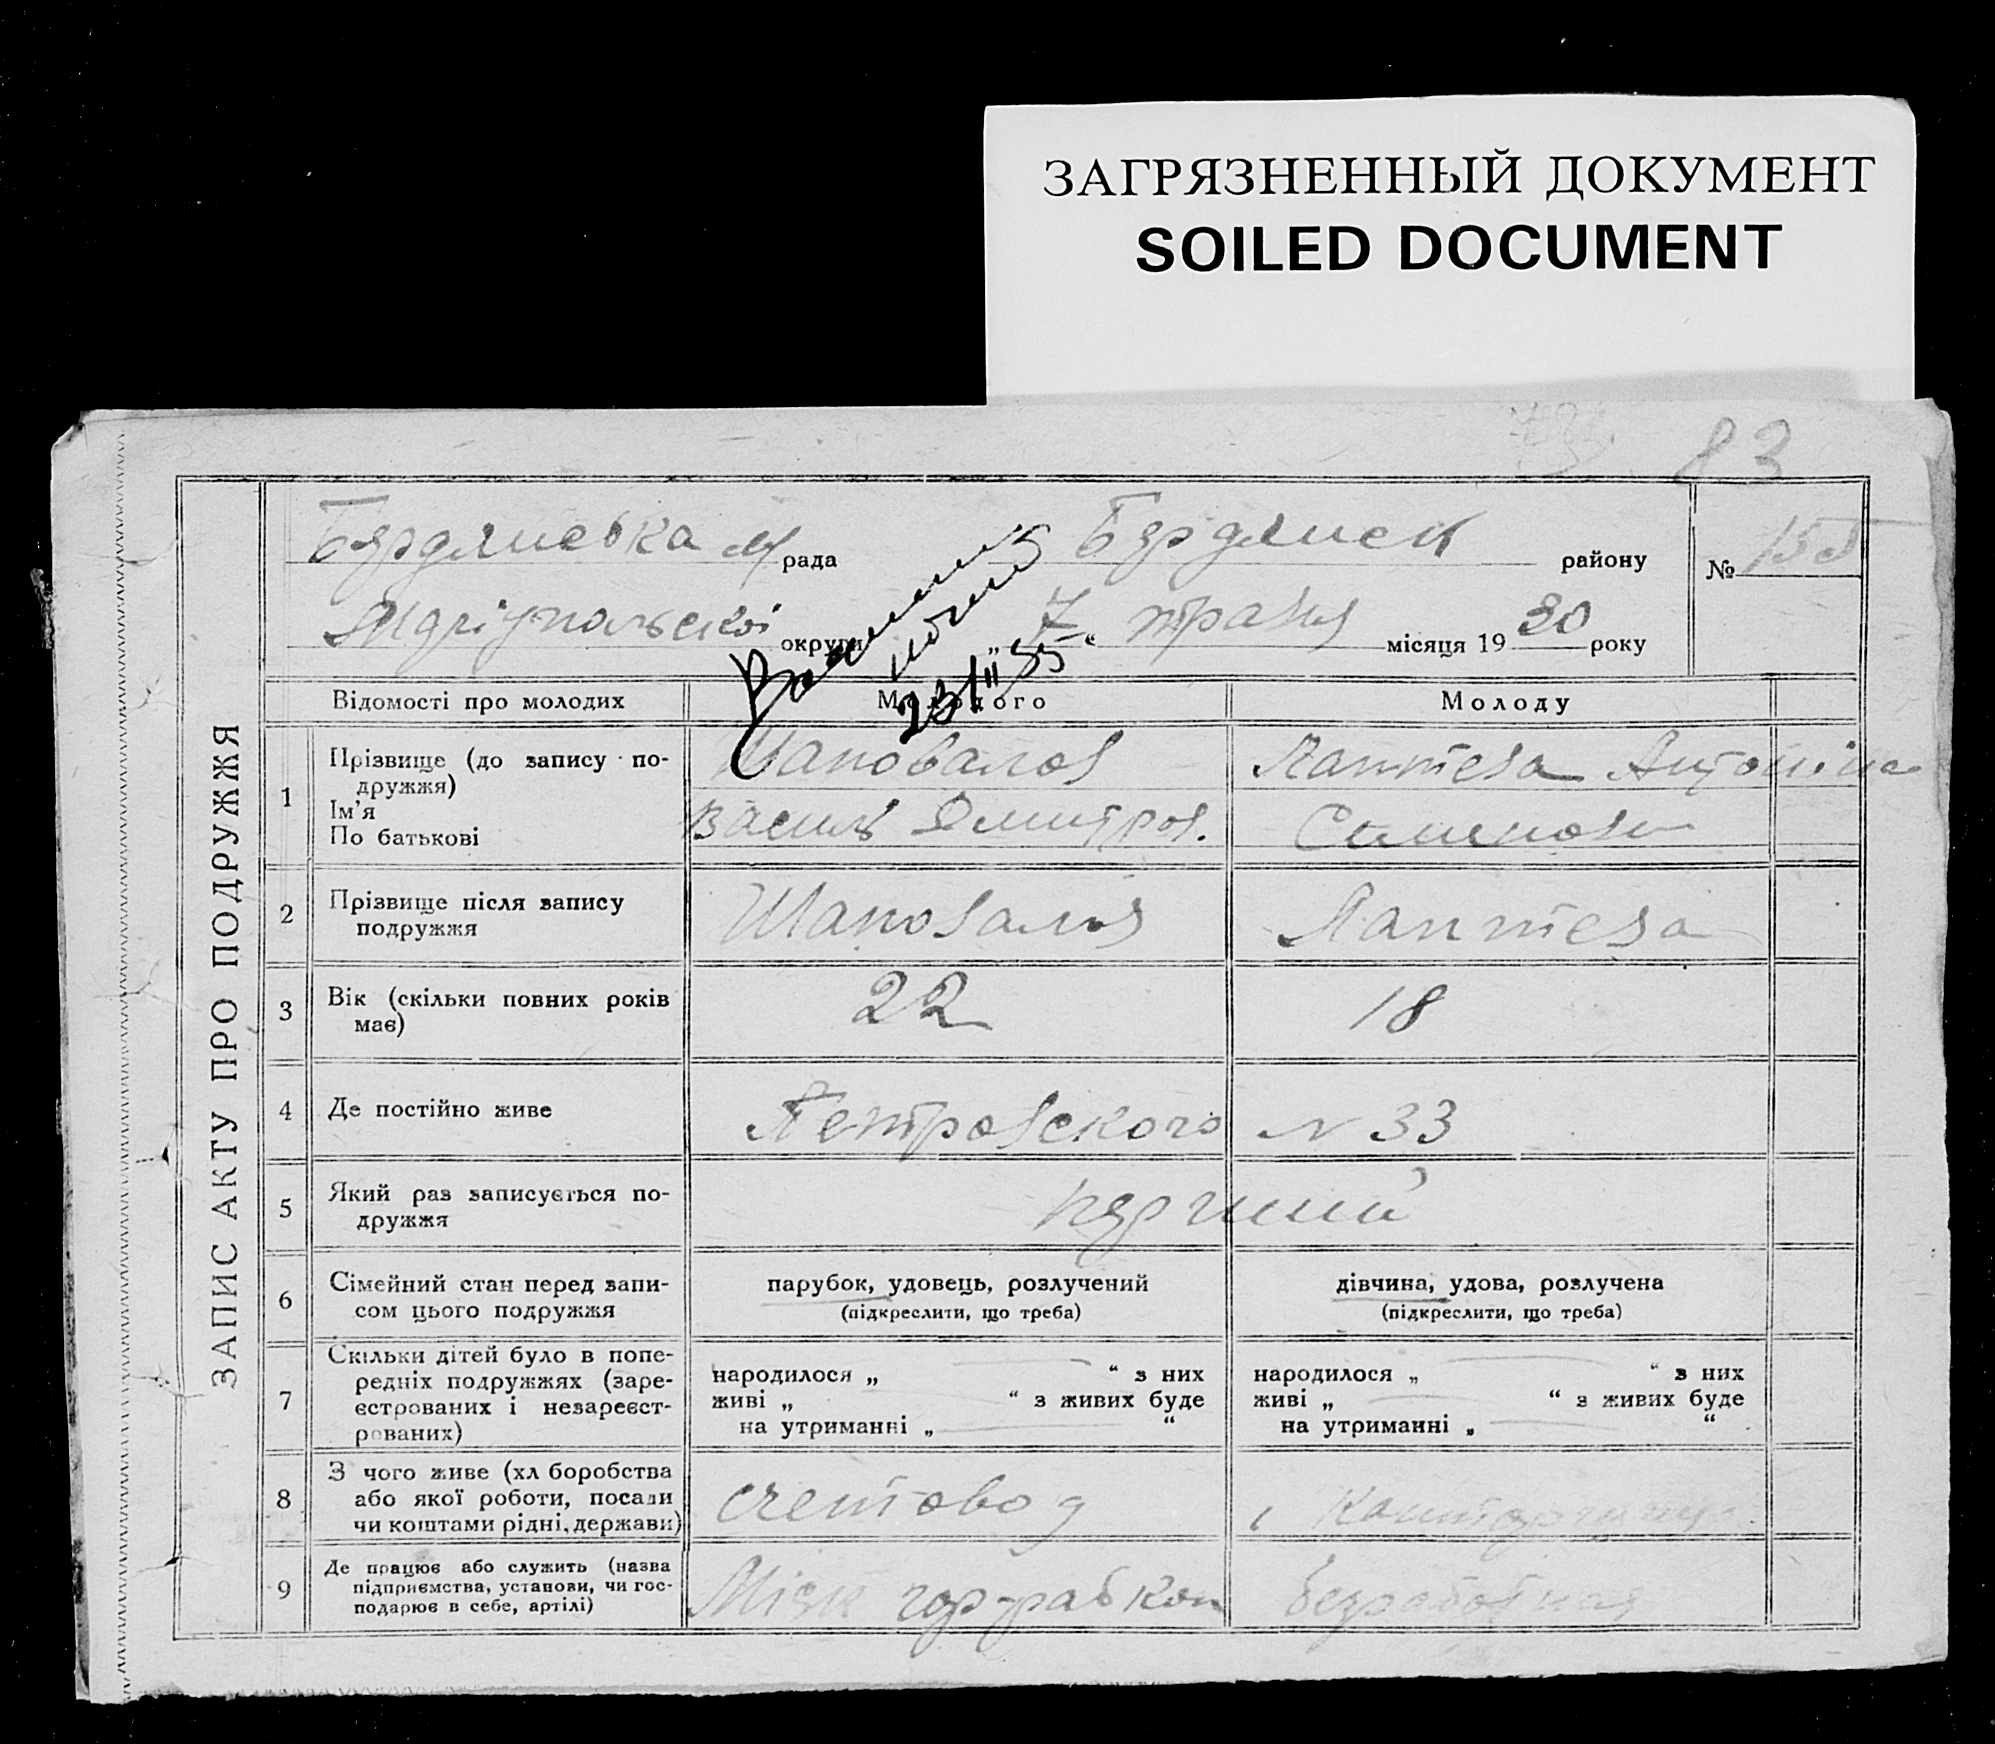 ЗАГРЯЗНЕННЫЙ ДОКУМЕНТ
SOILED DOCUMENT
83
Бердянська м/рада Бердянськ району
№ 155
Маріупольської округи „ 7 “ травня місяця 1930 року
23/II 35
ЗАПИС АКТУ ПРО ПОДРУЖЖЯ
Відомості про молодих Молодого Молоду
1 Прізвище (до запису по-
дружжя)
Ім'я
По батькові
Шаповалов
Василь Дмитров.
Лаптева Антоніна
Семенов
2 Прізвище після запису
подружжя
Шаповалов
Лаптева
3 Вік (скільки повних років
має)
22
18
4 Де постійно живе
Петровского N 33
5 Який раз записується по-
дружжя
перший
6 Сімейний стан перед запи-
сом цього подружжя
парубок, удовець, розлучений
(підкреслити, що треба)
дівчина, удова, розлучена
(підкреслити, що треба)
7 Скільки дітей було в попе-
редніх подружжях (заре-
єстрованих і незареєст-
рованих)
народилося „ “ з них
живі „ “ з живих буде
на утриманні „ “
народилося „ “ з них
живі „ “ з живих буде
на утриманні „ “
8 З чого живе (хлборобства
або якої роботи, посади
чи коштами рідні, держави)
счетовод
9 Де працює або служить (назва
підприємства, установи, чи гос-
подарює в себе, артілі)
Міськ
безработная